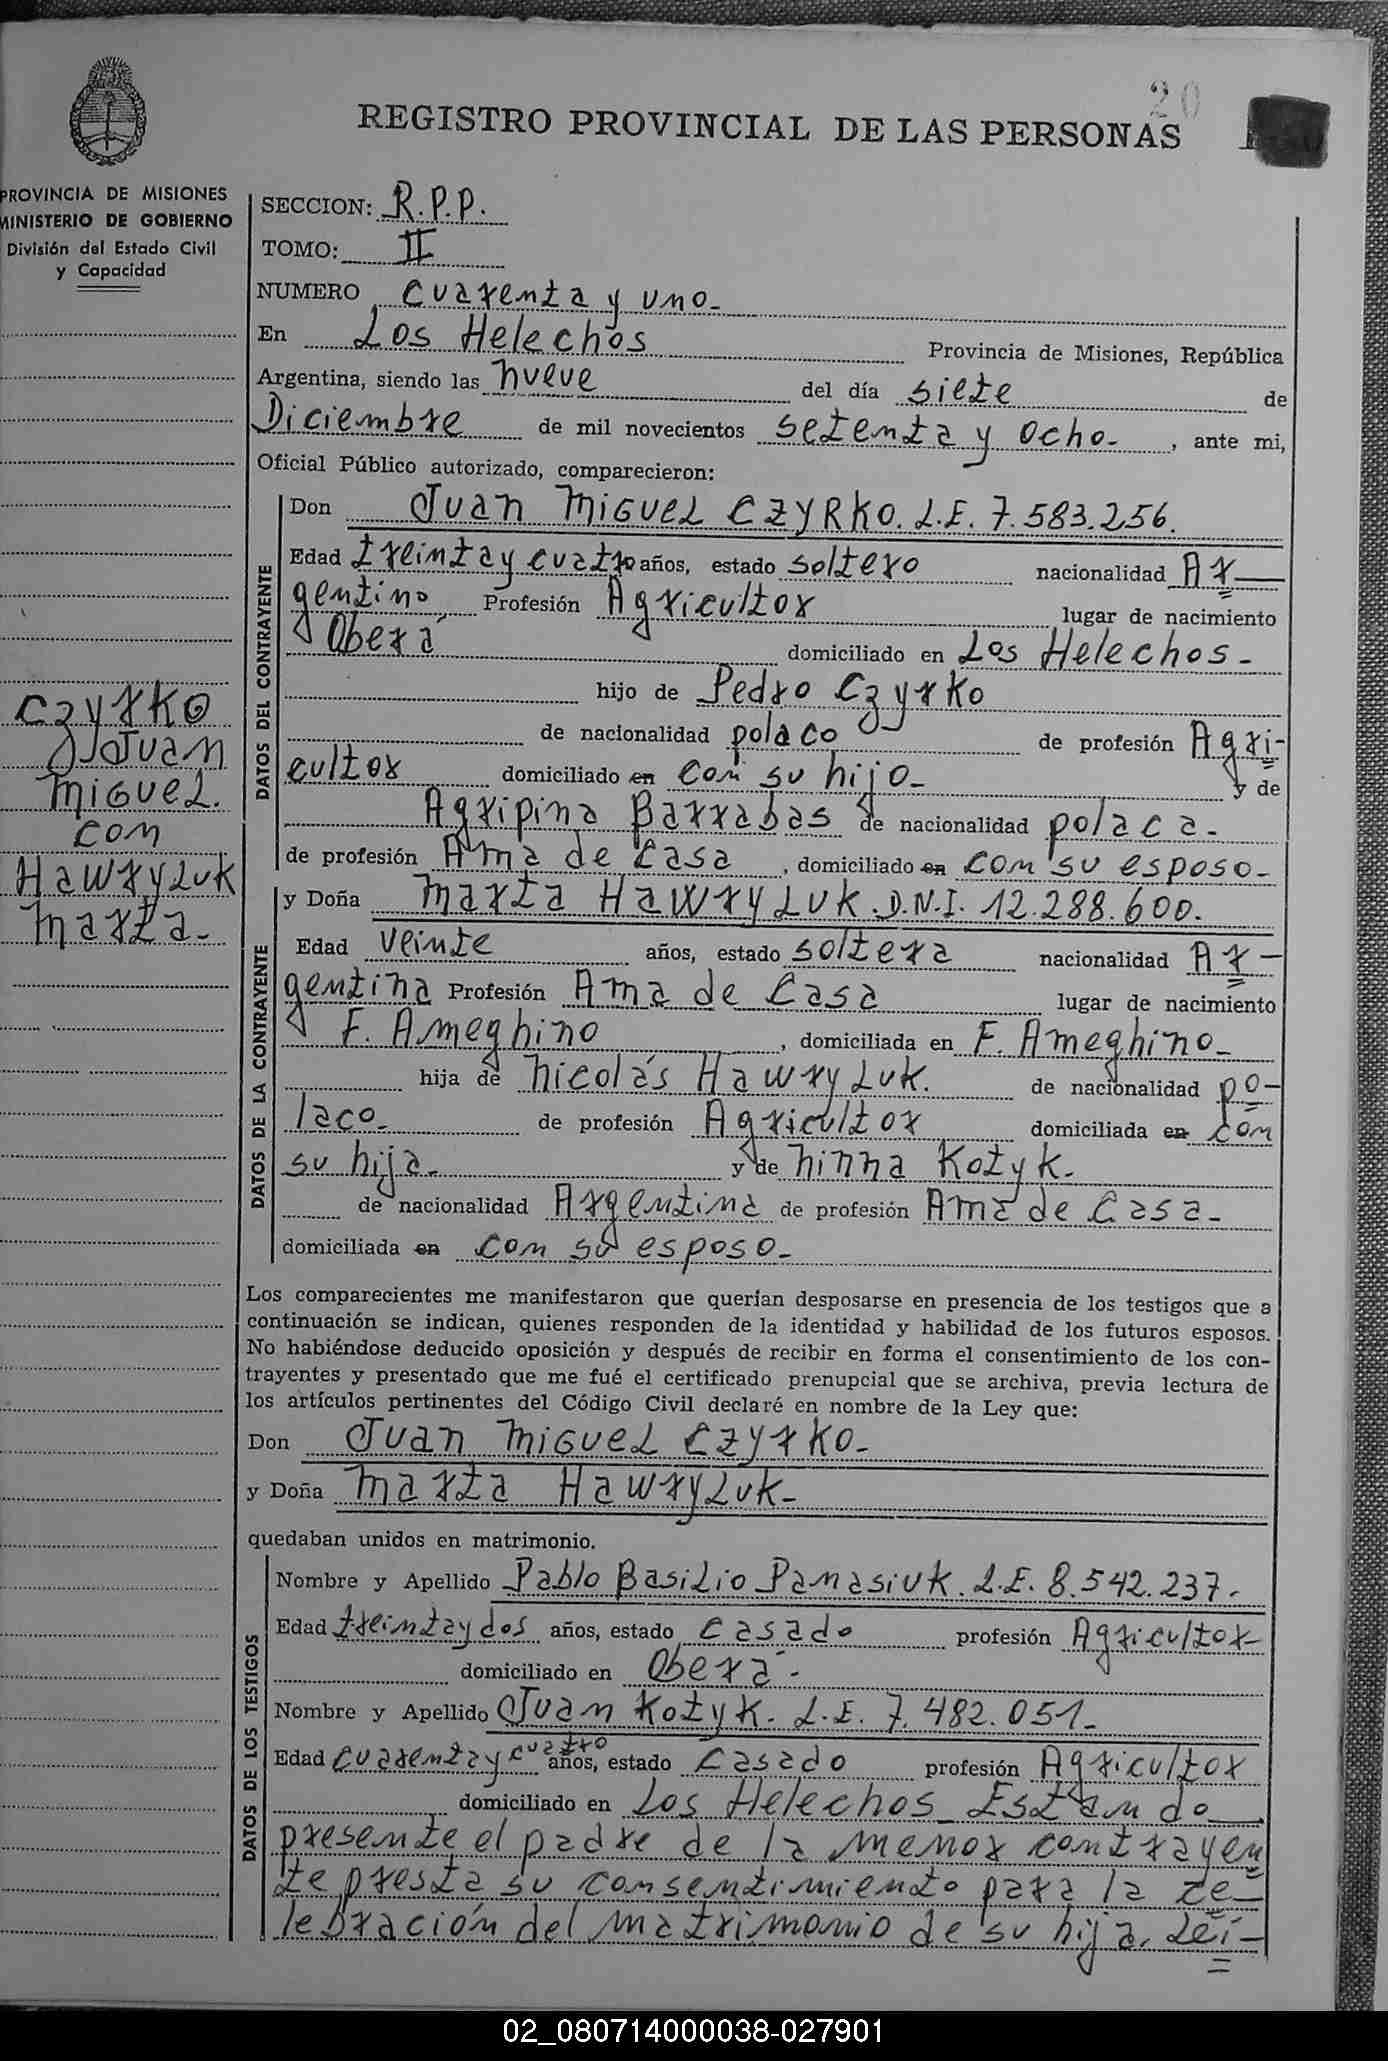 20
REGISTRO PROVINCIAL DE LAS PERSONAS
PROVINCIA DE MISIONES
MINISTERIO DE GOBIERNO
División del Estado Civil
y Capacidad
SECCION: R.P.P.
TOMO: II
NUMERO cuarenta y uno.
En Los Helechos Provincia de Misiones, República
Argentina, siendo las nueve del día siete de
Diciembre de mil novecientos setenta y ocho. , ante mi,
Oficial Público autorizado, comparecieron:
DATOS DEL CONTRAYENTE
Don Juan Miguel CZYRKO. L.E. 7.583.256.
Edad treinta y cuatro años, estado soltero nacionalidad Ar
gentino Profesión Agricultor lugar de nacimiento
Oberá domiciliado en Los Helechos-
hijo de Pedro Czyrko
de nacionalidad polaco de profesión Agri-
cultor domiciliado en con su hijo- y de
Agripina Barrabas de nacionalidad polaca-
de profesión Ama de Casa , domiciliado en con su esposo-
Czyrko
Juan
Miguel.
con
Hawryluk
Marta-
DATOS DE LA CONTRAYENTE
y Doña Marta Hawryluk. D.N.I. 12.288.600.
Edad veinte años, estado soltera nacionalidad Ar-
gentina Profesión Ama de Casa lugar de nacimiento
F. Ameghino , domiciliada en F. Ameghino-
hija de Nicolás Hawryluk. de nacionalidad po-
laco- de profesión Agricultor domiciliada en con
su hija- y de Ninna Kotyk.
de nacionalidad Argentina de profesión Ama de Casa-
domiciliada en con su esposo-
Los comparecientes me manifestaron que querían desposarse en presencia de los testigos que a
continuación se indican, quienes responden de la identidad y habilidad de los futuros esposos.
No habiéndose deducido oposición y después de recibir en forma el consentimiento de los con-
trayentes y presentado que me fué el certificado prenupcial que se archiva, previa lectura de
los artículos pertinentes del Código Civil declaré en nombre de la Ley que:
Don Juan Miguel Czyrko-
y Doña Marta Hawryluk-
quedaban unidos en matrimonio.
DATOS DE LOS TESTIGOS
Nombre y Apellido Pablo Basilio Panasiuk. L.E. 8.542.237.
Edad treinta y dos años, estado casado profesión Agricultor
domiciliado en Oberá-
Nombre y Apellido Juan Kotyk. L.E. 7.482.051-
Edad cuarenta y cuatro años, estado casado profesión Agricultor
domiciliado en Los Helechos Estando
presente el padre de la menor contrayen
te presta su consentimiento para la ce-
lebración del matrimonio de su hija. Leí-
02_080714000038-027901